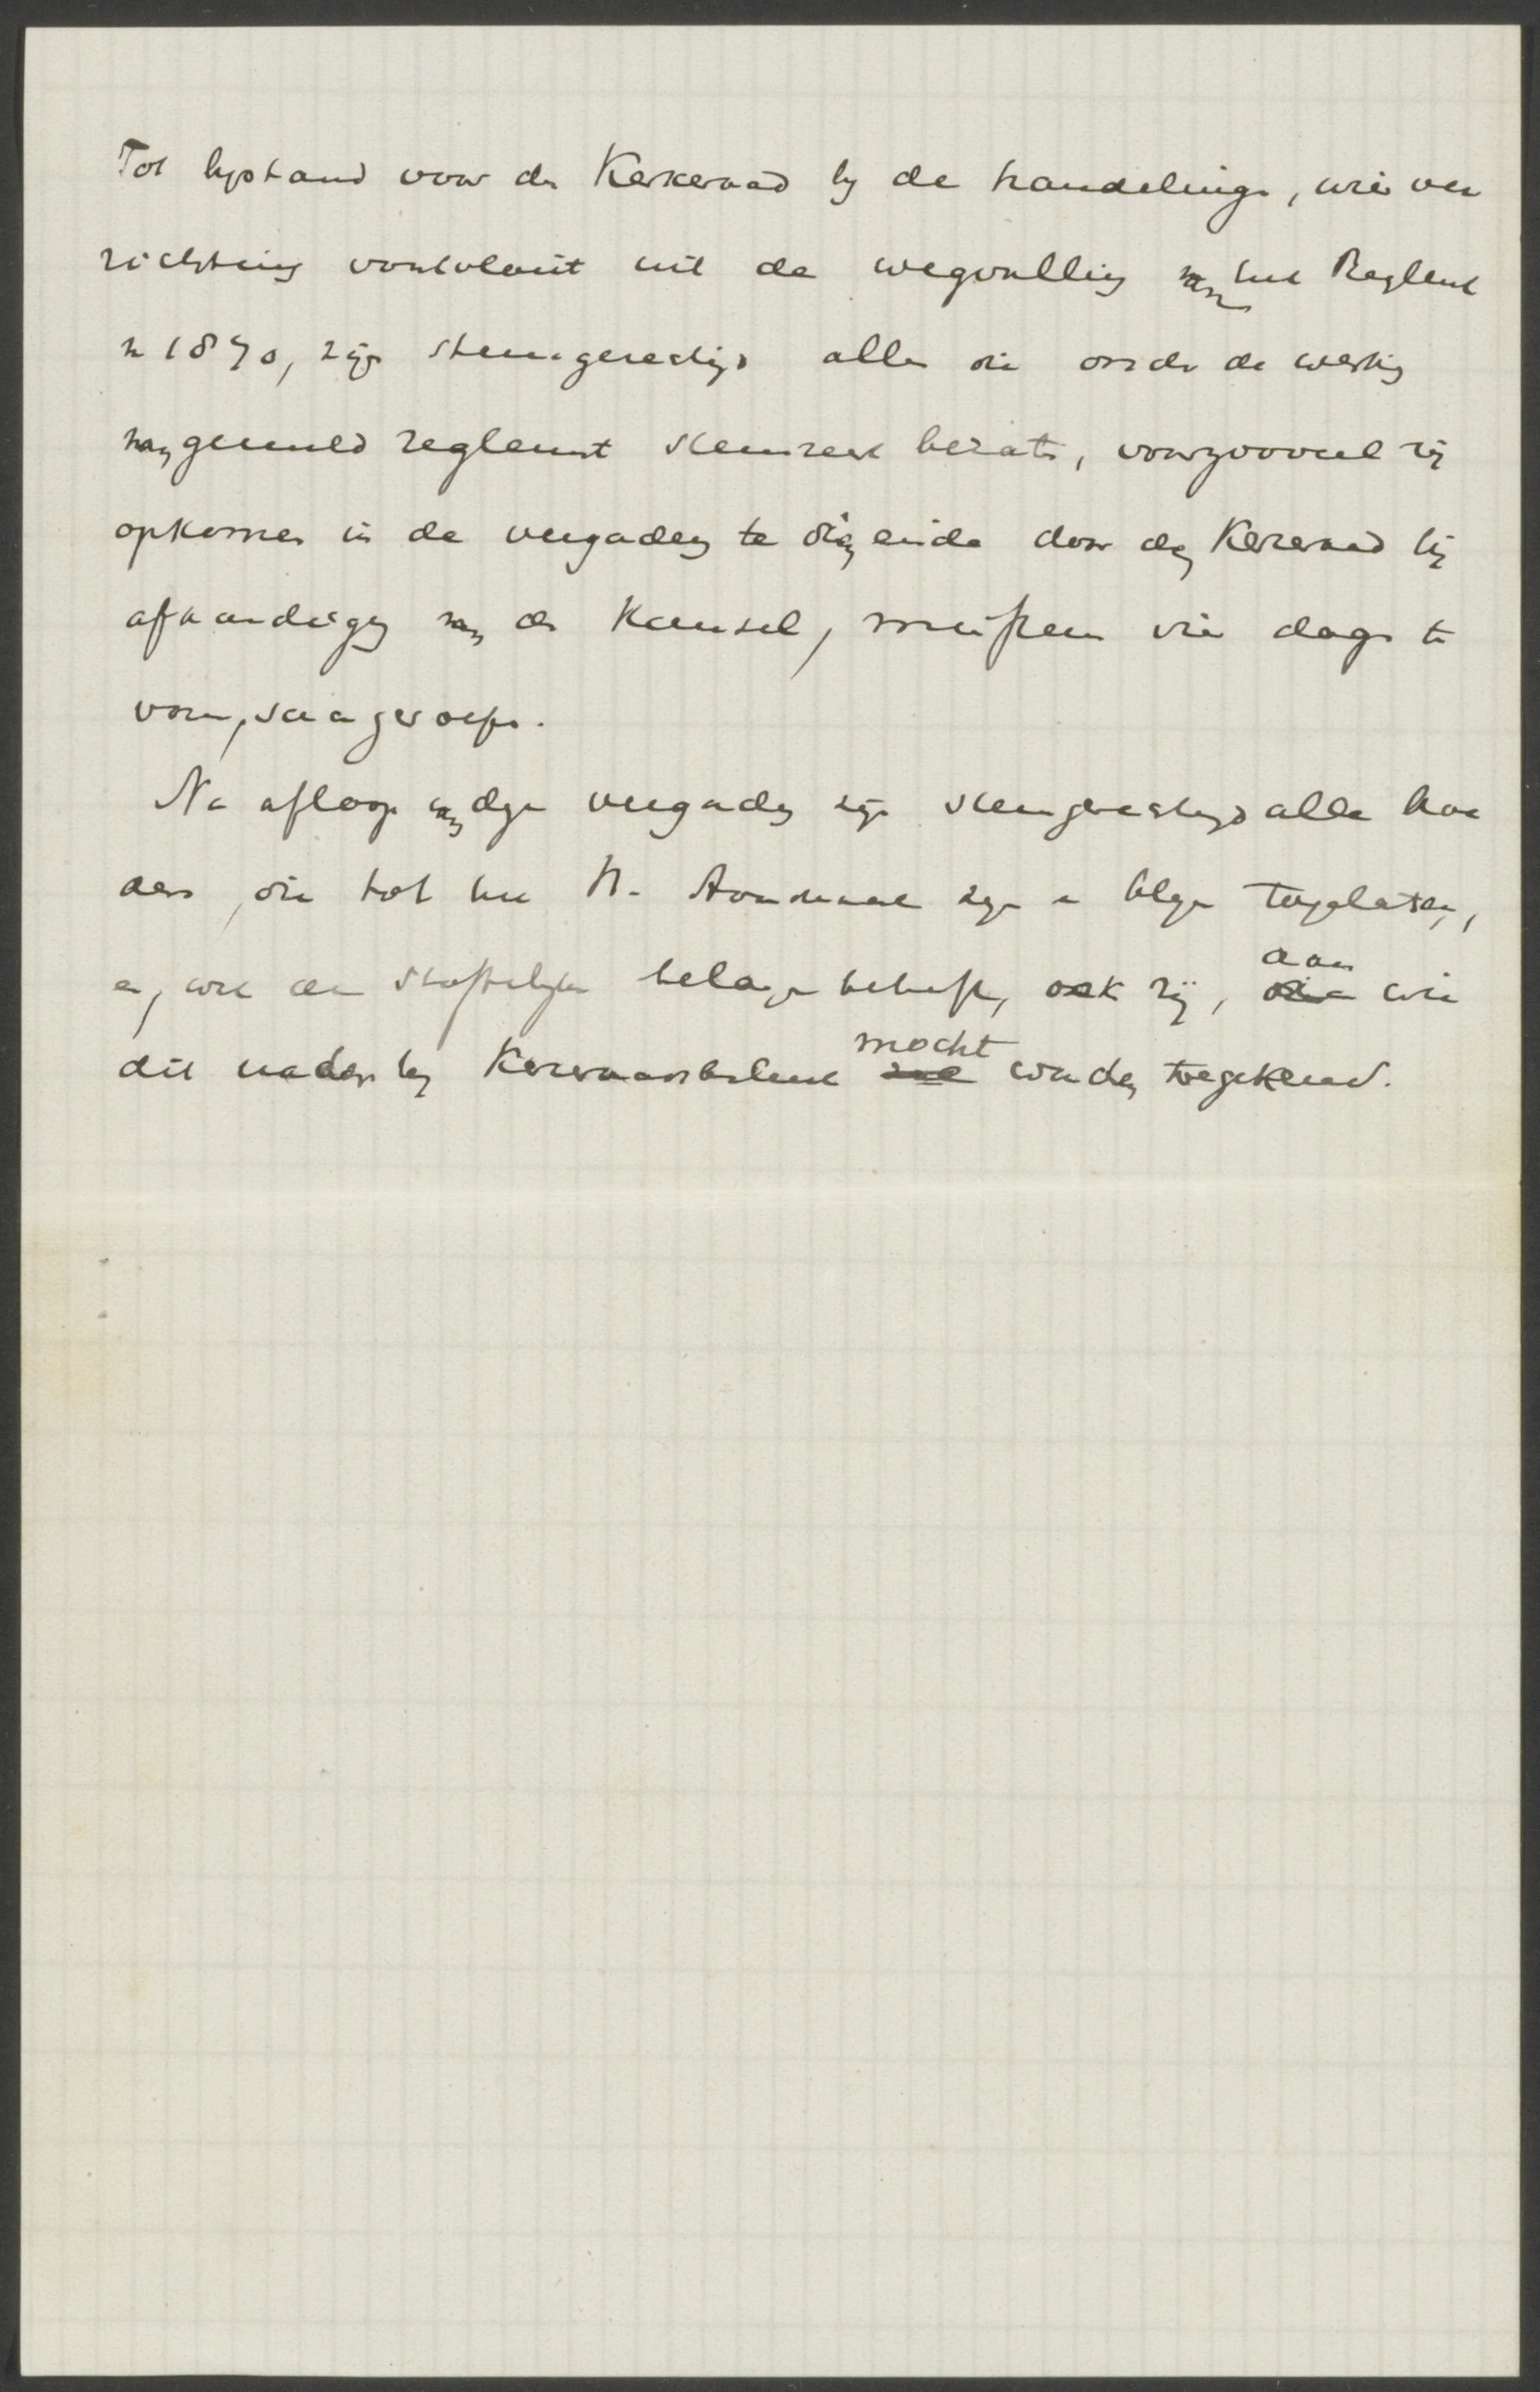 Tot bystand voor den Kerkeraad by de handelingen, wier ver
richting voortvloeit uit de wegvalling van het Reglement
van 1870, zijn stemgerechtigd allen die onder de werking
van genoemd reglement stemrecht bezaten, voorzooveel zij
opkomen in de vergadering te dien einde door den Kerkeraad bij
afkondiging van den Kansel, minstens vier dagen te
voren, saamgeroepen.
Na afloop van deze vergadering zijn stemgerechtigd alle hoof
den, die tot het H. Avondmaal zijn en blijven toegelaten,
en, wat de stoffelijke belangen betreft, ook zij, aan wie
dit nader by Kerkeraadsbesluit mocht worden toegekend.